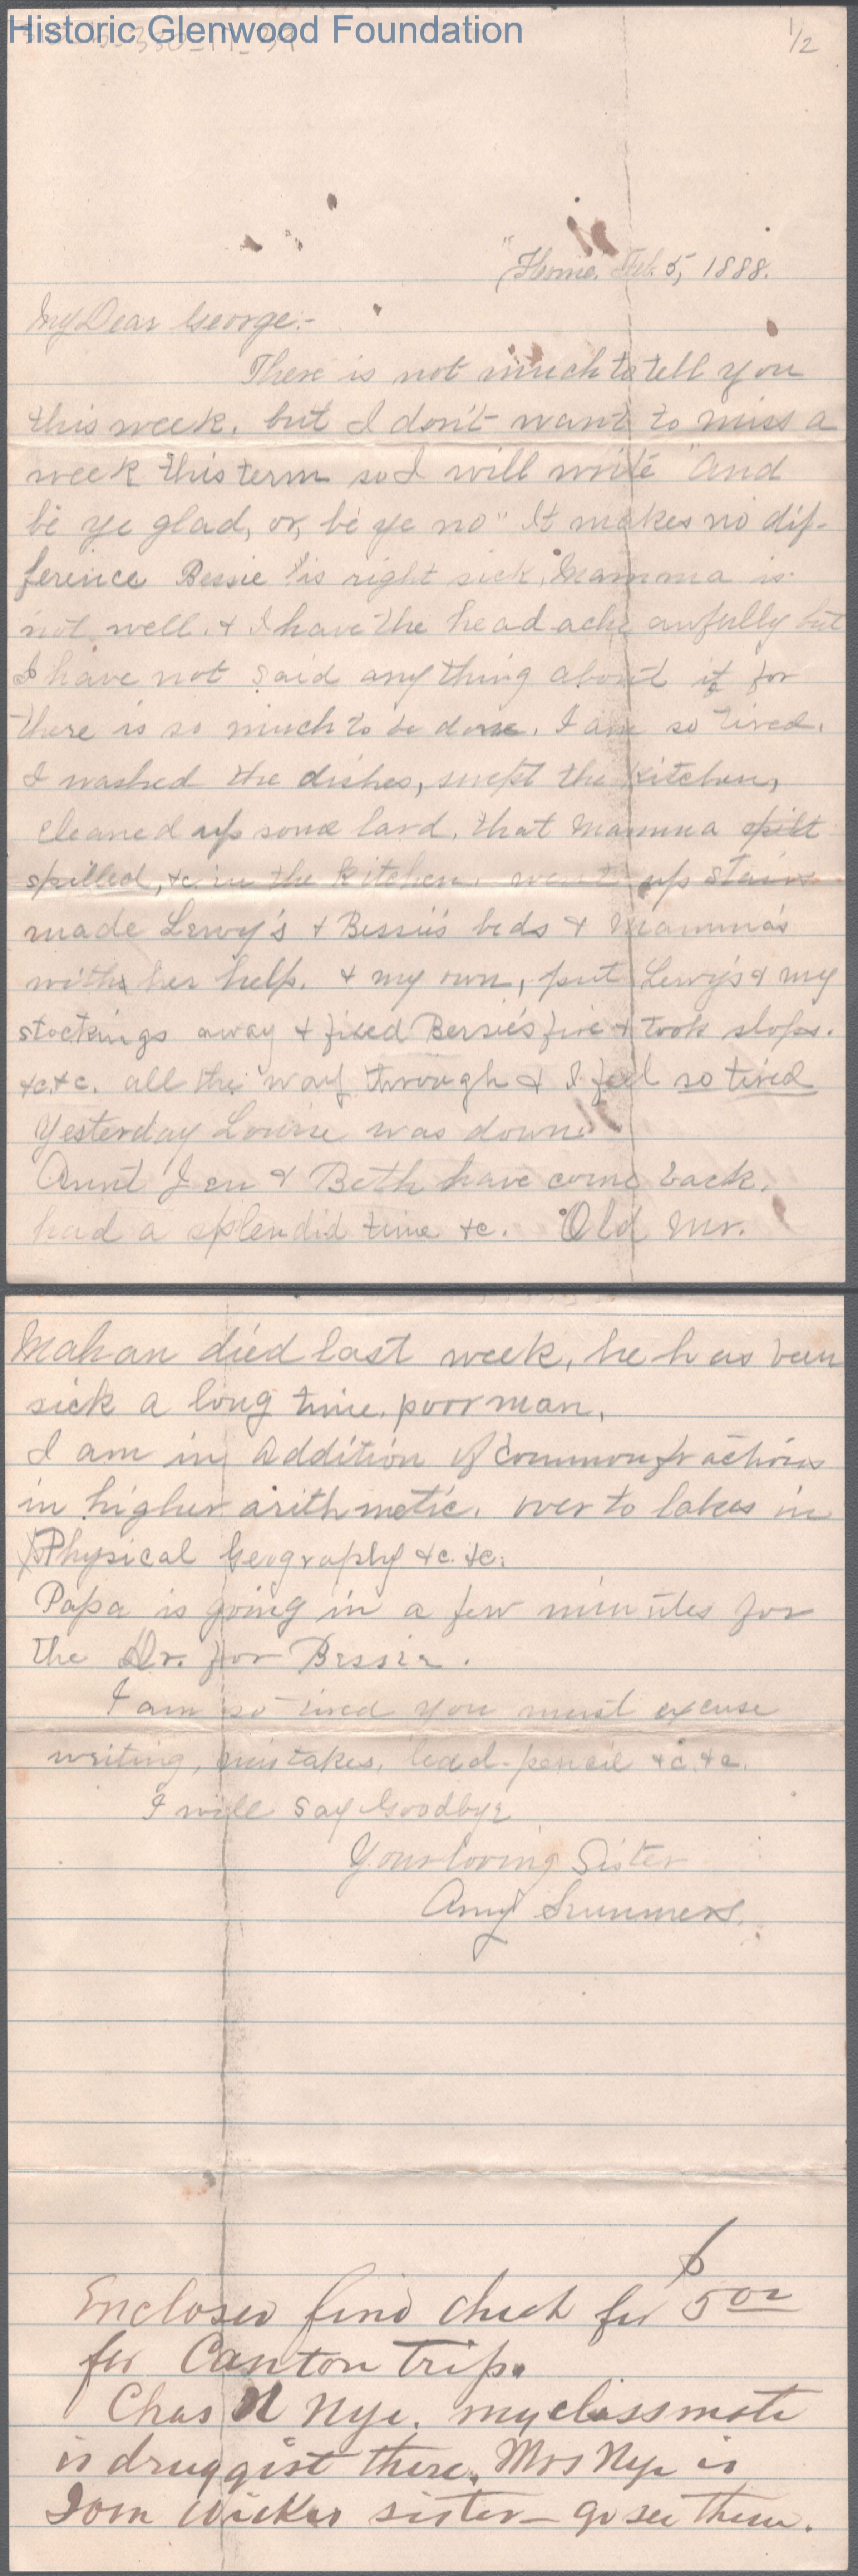 Historic Glenwood Foundation
1/2
"Home, Feb. 5, 1888.
My Dear George:-
There is not much to tell you
this week, but I don't want to miss a
week this term so I will write "And
be ye glad, or, be ye no" It makes no dif-
ference Bessie is right sick, Mamma is
not well, & I have the head ache awfully but
I have not said any thing about it for
there is so much to be done. I am so tired.
I washed the dishes, swept the kitchen,
cleaned up some lard, that Mamma spilt
spilled, &c. in the kitchen. went up stairs
made Lewy's & Bessie's beds & Mamma's
with her help. & my own, put Lewy's & my
stockings away & fixed Bessie's fire & took slops.
&c &c. all the way through & I feel so tired
Yesterday Louise was down.
Aunt Jen & Beth have come back,
had a splendid time &c. Old Mr.
Mahan died last week, he has been
sick a long time, poor man,
I am in addition of common fractions
in higher arithmetic. over to lakes in
Physical Geography &c. &c.
Papa is going in a few minutes for
the Dr. for Bessie.
I am so tired you must excuse
writing, mistakes, lead-pencil &c. &c.
I will say Goodbye
Your loving Sister
Amy Summers.
Enclosed find check for $5 00
for Canton trip.
Chas N Nye, my classmate
is druggist there. Mrs Nye is
Tom Wickes sister - go see them.